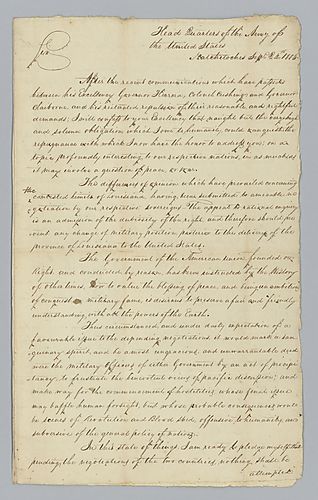 Sir
Head Quarters of the Army of
the United States
Natchitoches Sepr 24th 1806
After the recent communications which have passed
between his Excellency Governor Herrera, Colonel Cushing and Governor
Claiborne, and his reiterated repulsion of their reasonable and rightful
demands; I will confess to your Excellency that naught but the
and solemn obligation which I owe to humanity, could vanquish the
repugnance with which I now have the honor to address you, on a
topic profoundly interesting to our respective nations, in as much as
it may involve a question of peace or war.
The difference of opinion which have prevailed concerning
the contested limits of Louisiana, having been submitted to amicable ne-
gotiation by our respective sovereigns, the appeal to rational enquiry
is an admission of the dubiosity of the right, and therefore should pre-
vent any change of military position, posterior to the delivery of the
province of Louisiana to the United States.
The Government of the American union, founded on
Right, and conducted by reason, has been sustained by the History
of other times, how to value the blessing of peace, and being unambitious
of conquest or military fame, is desirous to preserve a fair and friendly
understanding with all the powers of the Earth.
Thus circumstanced, and under daily expectation of a
favourable issue to the depending negotiations it would mark a san-
guinary spirit, and be a most ungracious, and unwarrantable deed
were the military officers of either Government by an act of precipi-
tancy, to frustrate the beneficent views of pacific discussion; and
make way for the commencement of hostilities, whose final issue
may baffle human foresight, but whose probable consequences would be
be scenes of Revolution and Blood shed, offensive to humanity, and
subversive of the general policy of nations.
In this state of things, I am ready to pledge myself that
pending the negotiations of the two countries, nothing shall be
attempted